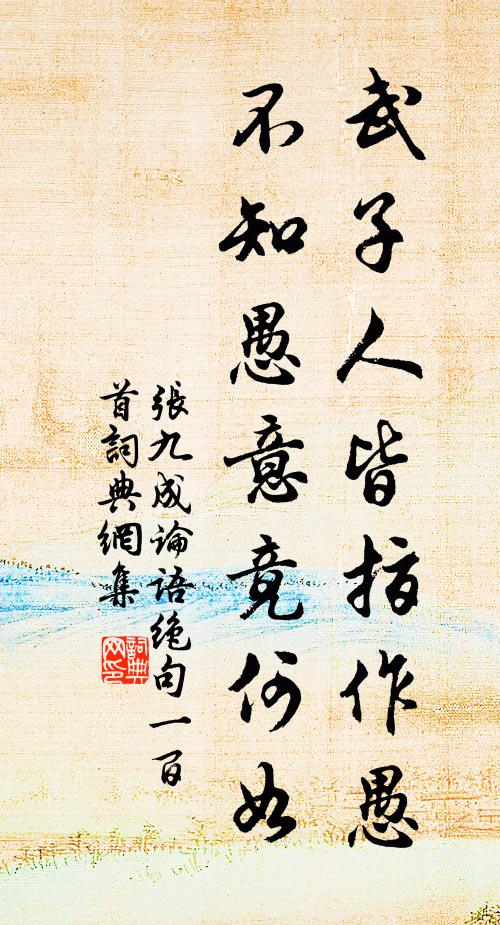 武子人皆指作愚
不知愚意竟何如
張九成論語絕句一百
首詞典網集
詞典
网印